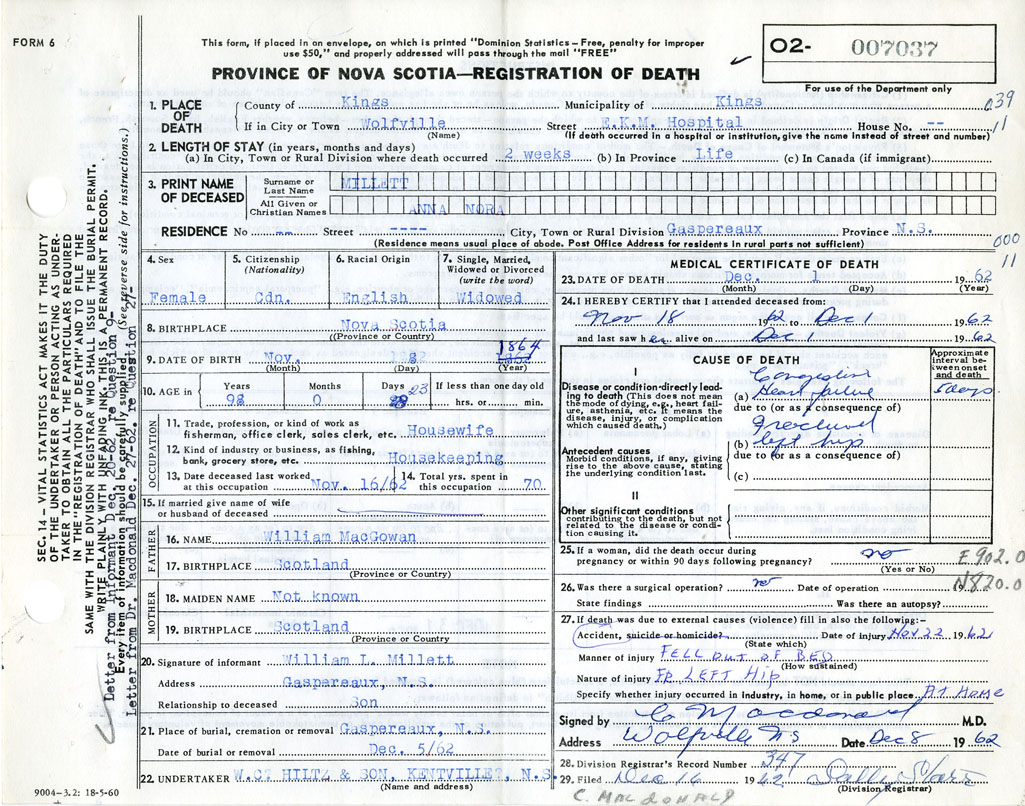 FORM 6
This form, if placed in an envelope, on which is printed "Dominion Statistics – Free, penalty for improper
use $50," and properly addressed will pass through the mail "FREE"
PROVINCE OF NOVA SCOTIA—REGISTRATION OF DEATH
O2- 007037
For use of the Department only
1. PLACE OF DEATH
County of Kings Municipality of Kings 039
If in City or Town Wolfville Street E.K.M. Hospital House No. -- 11
(Name) (If death occurred in a hospital or institution, give the name instead of street and number)
2. LENGTH OF STAY (in years, months and days)
(a) In City, Town or Rural Division where death occurred 2 weeks (b) In Province Life (c) In Canada (if immigrant)
3. PRINT NAME OF DECEASED
Surname or Last Name MILLETT
All Given or Christian Names ANNA NORA
RESIDENCE No -- Street ---- City, Town or Rural Division Gaspereaux Province N.S.
(Residence means usual place of abode. Post Office Address for residents in rural parts not sufficient)
000
11
4. Sex Female
5. Citizenship (Nationality) Cdn.
6. Racial Origin English
7. Single, Married, Widowed or Divorced (write the word) Widowed
8. BIRTHPLACE Nova Scotia
(Province or Country)
9. DATE OF BIRTH Nov. 1864
(Month) (Day) (Year)
10. AGE in Years 98 Months 0 Days 23 If less than one day old hrs. or min.
OCCUPATION
11. Trade, profession, or kind of work as
fisherman, office clerk, sales clerk, etc. Housewife
12. Kind of industry or business, as fishing,
bank, grocery store, etc. Housekeeping
13. Date deceased last worked at this occupation Nov. 16/62
14. Total yrs. spent in this occupation 70
15. If married give name of wife
or husband of deceased
FATHER
16. NAME William MacGowan
17. BIRTHPLACE Scotland
(Province or Country)
MOTHER
18. MAIDEN NAME Not known
19. BIRTHPLACE Scotland
(Province or Country)
20. Signature of informant William L. Millett
Address Gaspereaux, N.S.
Relationship to deceased Son
21. Place of burial, cremation or removal Gaspereaux, N.S.
Date of burial or removal Dec. 5/62
22. UNDERTAKER W.C. HILTZ & SON, KENTVILLE, N.S.
(Name and address)
9004-3.2: 18-5-60
MEDICAL CERTIFICATE OF DEATH
23. DATE OF DEATH Dec. 1 1962
(Month) (Day) (Year)
24. I HEREBY CERTIFY that I attended deceased from:
Nov 18 1962 to Dec 1 1962
and last saw her alive on Dec 1 1962
CAUSE OF DEATH
Approximate interval between onset and death
I
Disease or condition directly leading to death (This does not mean the mode of dying, e.g., heart failure, asthenia, etc. It means the disease, injury, or complication which caused death.)
(a) Congestive Heart failure 5 days
due to (or as a consequence of)
Antecedent causes
Morbid conditions, if any, giving rise to the above cause, stating the underlying condition last.
(b) Fractured left hip
due to (or as a consequence of)
(c)
II
Other significant conditions
contributing to the death, but not related to the disease or condition causing it.
25. If a woman, did the death occur during
pregnancy or within 90 days following pregnancy? no
(Yes or No)
E902.0
N820.0
26. Was there a surgical operation? no Date of operation 19
State findings Was there an autopsy?
27. If death was due to external causes (violence) fill in also the following:-
Accident, suicide or homicide? Date of injury Nov 22 1962
(State which)
Manner of injury FELL OUT OF BED
(How sustained)
Nature of injury Fr LEFT Hip
Specify whether injury occurred in industry, in home, or in public place AT HOME
Signed by C Macdonald M.D.
Address Wolfville NS Date Dec 8 1962
28. Division Registrar's Record Number 347
29. Filed Dec 16 1962
(Division Registrar)
C. MACDONALD
SEC. 14 – VITAL STATISTICS ACT MAKES IT THE DUTY
OF THE UNDERTAKER OR PERSON ACTING AS UNDER-
TAKER TO OBTAIN ALL THE PARTICULARS REQUIRED
IN THE "REGISTRATION OF DEATH" AND TO FILE THE
SAME WITH THE DIVISION REGISTRAR WHO SHALL ISSUE THE BURIAL PERMIT.
WRITE PLAINLY WITH UNFADING INK, THIS IS A PERMANENT RECORD.
Letter from Informant Dec. 20-62, re Question 9-
Every item of information should be carefully supplied. (See reverse side for instructions.)
Letter from Dr. Macdonald Dec. 27-62. re Question 27-